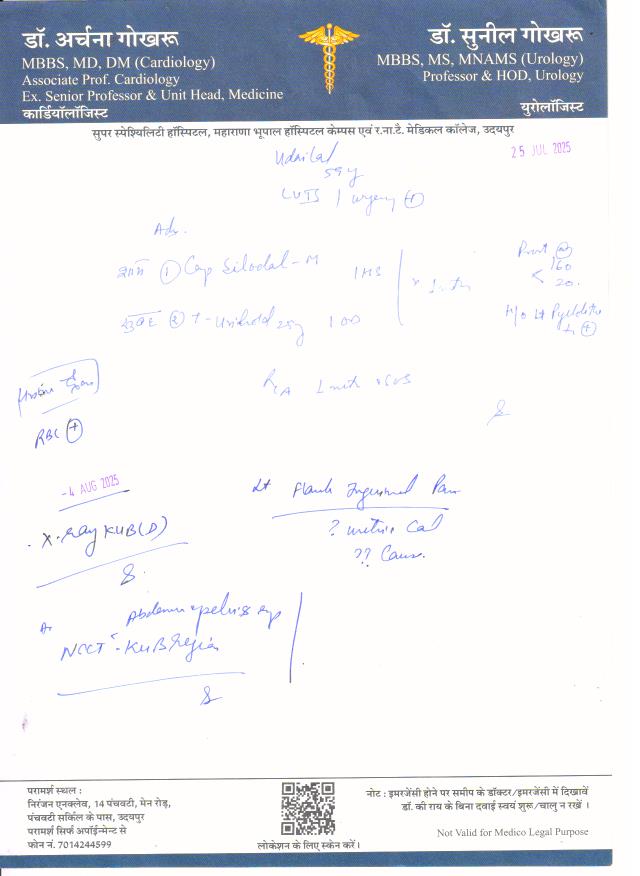 डॉ. अर्चना गोखरू
MBBS, MD, DM (Cardiology)
Associate Prof. Cardiology
Ex. Senior Professor & Unit Head, Medicine
कार्डियॉलॉजिस्ट
डॉ. सुनील गोखरू
MBBS, MS, MNAMS (Urology)
Professor & HOD, Urology
यूरोलॉजिस्ट
सुपर स्पेश्यिलिटी हॉस्पिटल, महाराणा भूपाल हॉस्पिटल केम्पस एवं र.ना.टै. मेडिकल कॉलेज, उदयपुर
25 JUL 2025
Udailal
59y
LUTS / urgency +
Adv.
① Cap Silodal-M 1 HS
② T- 25mg 1 OD
Prost
160
< 20.
H/o Lt
R/A 1 mth
RBC +
-4 AUG 2025
Lt Flank Inguinal Pain
?
?? Cause.
X-ray KUB (D)
Abdomen & pelvis
NCCT - KUB Region
परामर्श स्थल :
निरंजन एनक्लेव, 14 पंचवटी, मेन रोड़,
पंचवटी सर्किल के पास, उदयपुर
परामर्श सिर्फ अपॉईन्मेन्ट से
फोन नं. 7014244599
लोकेशन के लिए स्केन करें।
नोट : इमरजेंसी होने पर समीप के डॉक्टर/इमरजेंसी में दिखावें
डॉ. की राय के बिना दवाई स्वयं शुरू/चालु न रखें ।
Not Valid for Medico Legal Purpose